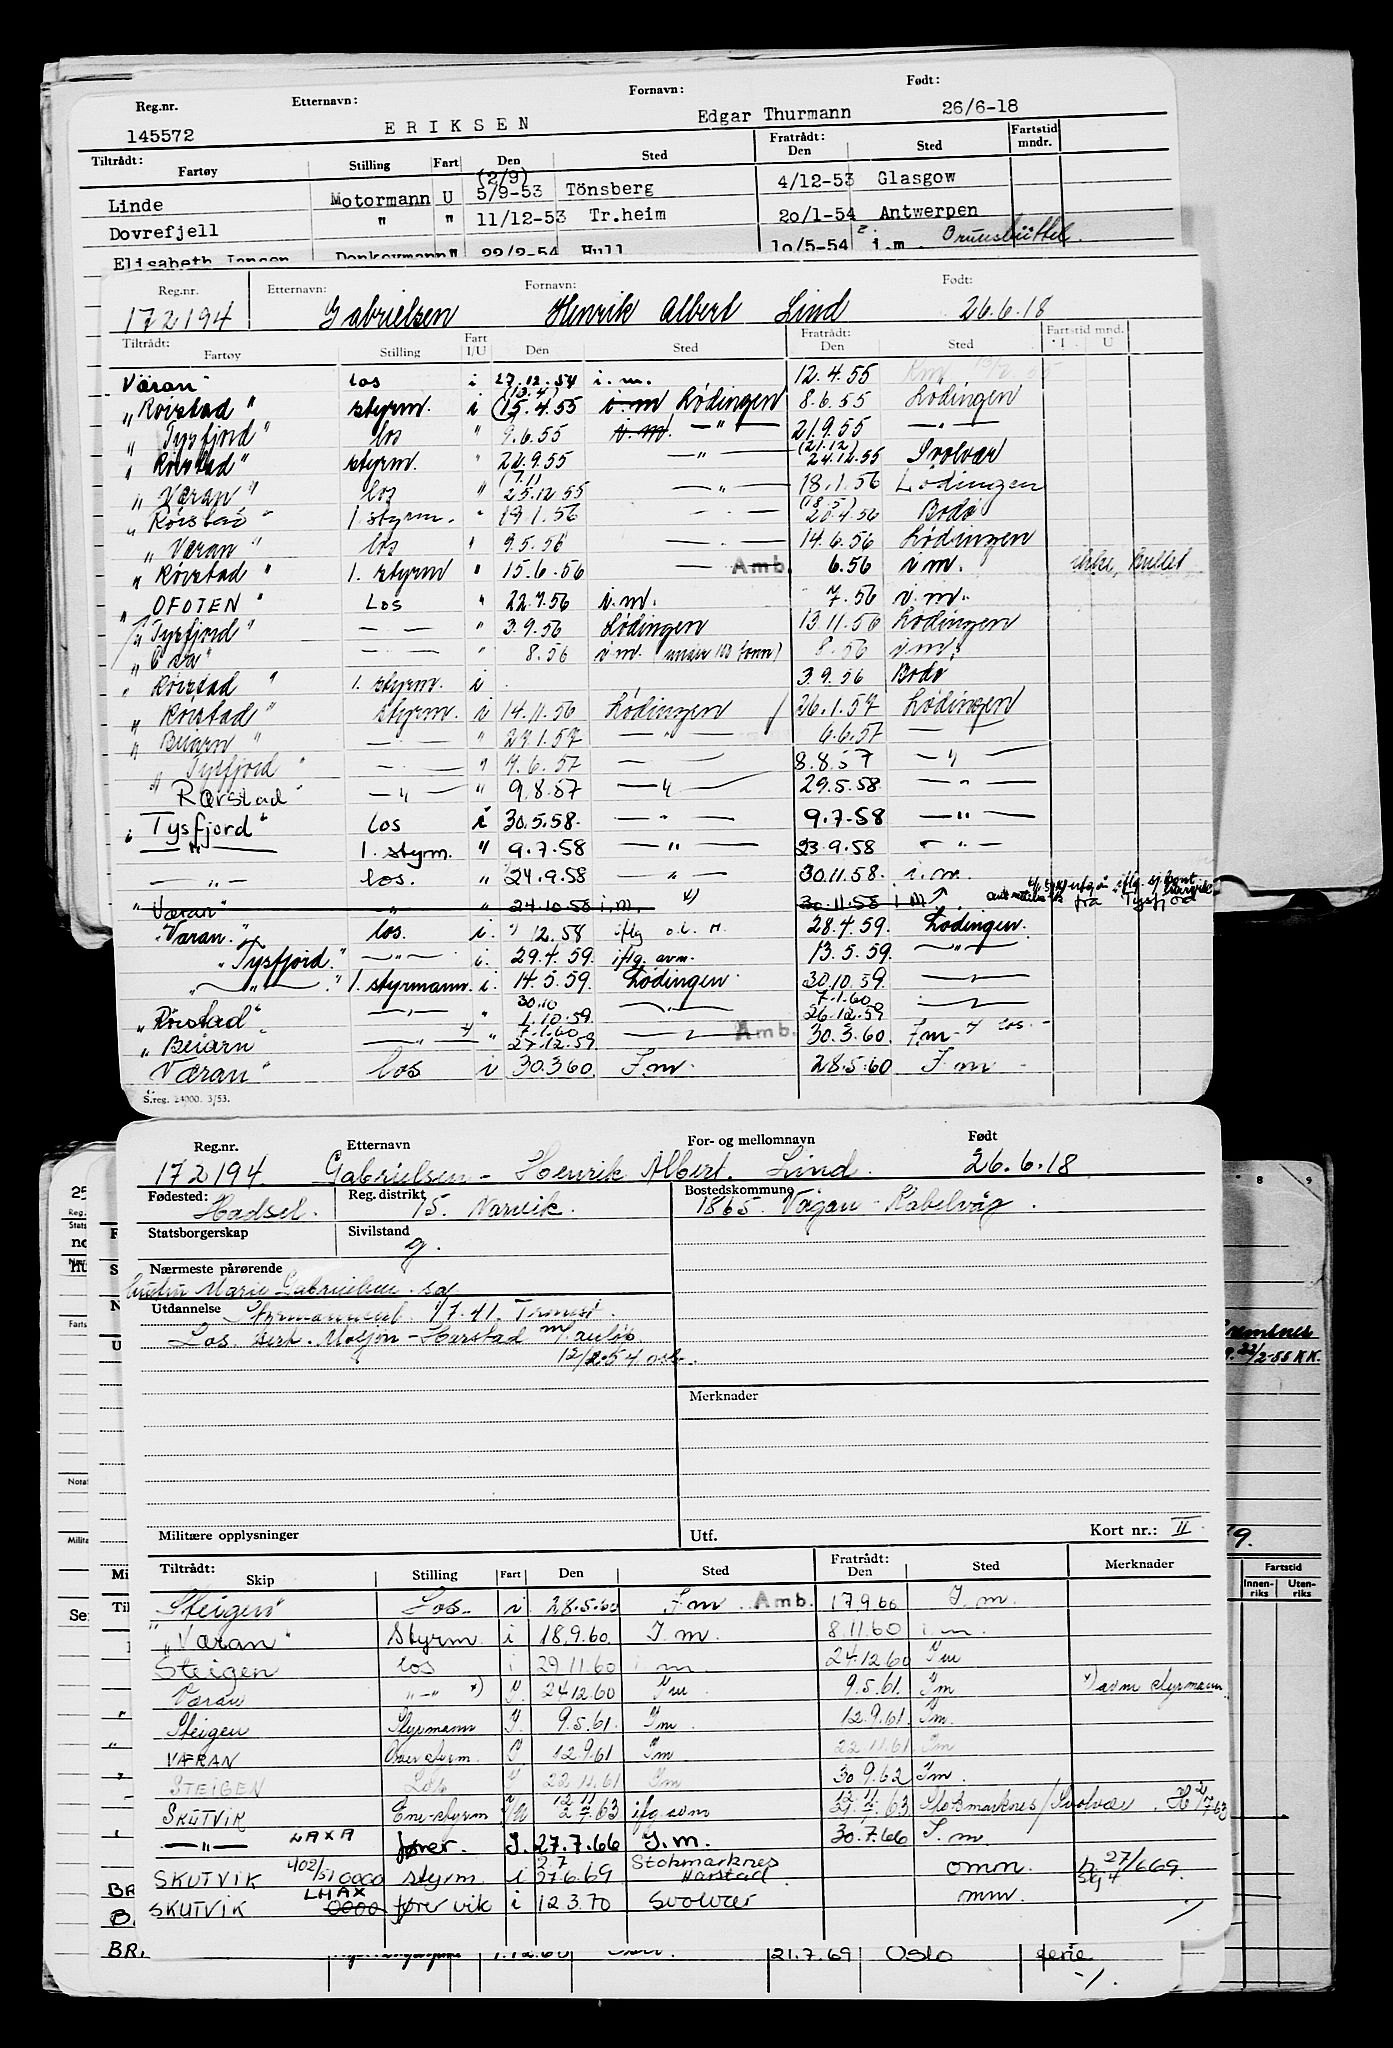 Reg.nr. Etternavn: Fornavn: Født:
145572 ERIKSEN Edgar Thurmann 26/6-18
Tiltrådt: Fartøy Stilling Fart Den Sted Fratrådt: Den Sted Fartstid mndr.
(2/9)
Linde Motormann U 5/9-53 Tönsberg 4/12-53 Glasgow
Dovrefjell " " 11/12-53 Tr.heim 20/1-54 Antwerpen
Elisabeth Jansen Donkeymann " 22/2-54 Hull 10/5-54 i.m. Brunsbüttel.
Reg.nr. Etternavn: Fornavn: Født:
172194 Gabrielsen Henrik Albert Lind 26.6.18
Tiltrådt: Fartøy Stilling Fart I/U Den Sted Fratrådt: Den Sted Fartstid mnd. I U
Væran" los i 27.12.54 i.m. 12.4.55
(13.4)
"Rörstad" styrm. i (15.4.55 i.m Lödingen 8.6.55 Lodingen
"Tysfjord" los " 9.6.55 i.m. — " — 21.9.55 — " —
(21.12)
"Rörstad" styrm. " 22.9.55 — " — 24.12.55 Svolvær
"Væran" los " 25.12.55 — " — 18.1.56 Lödingen
(18.5)
"Rörstad" 1. styrm. " 19.1.56 — " — 20.4.56 Bodö
"Væran" los " 9.5.56 — " — 14.6.56 Lödingen
"Rörstad" 1. styrm " 15.6.56 — Amb. 6.56 i m.
"OFOTEN" Los " 22.7.56 i.m. 7.56 i.m.
"Tysfjord" — — " 3.9.56 Lödingen 13.11.56 Lödingen
— — " 8.56 i.m. (under 100 tonn) 8.56 i m.
"Rörstad" 1. styrm. i 3.9.56 Bodö
"Rörstad" styrm. i 14.11.56 Lödingen 26.1.57 Lödingen
"Beiarn" — " — " 27.1.57 — " — 6.6.57 —
"Tysfjord" — " — " 7.6.57 — 8.8.57 — " —
"Rørstad" — " — " 9.8.57 — " — 29.5.58 — " —
"Tysfjord" los i 30.5.58. — " — 9.7.58 — " —
— " — 1. styrm. " 9.7.58 — " — 23.9.58 — " —
— " — los. " 24.9.58 — " — 30.11.58. i.m.
"Væran" " " 24.10.58 i.m. x) 30.11.58 i m fra Tysfjord
"Væran." los. i. 12.58 iflg o.l. 28.4.59. Lödingen.
"Tysfjord." — " — i. 29.4.59. iflg. avm. 13.5.59. — " —
" — " — " 1. styrmann. i. 14.5.59. Lödingen. 30.10.59. —
30.10 7.1.60
"Rörstad" — " — " 1.10.59. — " — 26.12.59 —
7.1.60
"Beiarn — " — " 27.12.59 — Amb. 30.3.60 I.m
Væran" los i 30.3.60. I.m. 28.5.60 I. m
S.reg. 24000. 3/53.
Reg.nr. Etternavn For- og mellomnavn Født
172194. Gabrielsen - Henrik Albert. Lind. 26.6.18
Fødested: Hadsel. Reg.distrikt 75. Narvik. Bostedskommune 1865. Vågan - Kabelvåg.
Statsborgerskap Sivilstand g.
Nærmeste pårørende
Marie Gabrielsen. sa
Utdannelse Styrmannsert. 1/7.41. Tromsø.
Los. sert. Mosjøen - Harstad
12/2.54
Merknader
Militære opplysninger Utf. Kort nr.: II
Tiltrådt: Skip Stilling Fart Den Sted Fratrådt: Den Sted Merknader
"Steigen" Los. i 28.5.60 I m Amb. 17.9.60 I. m.
"Væran" Styrm. i 18.9.60. I. m. 8.11.60 i. m.
Steigen los i 29.11.60 i. m. 24.12.60 I m
Væran " — " x) I. 24.12.60 I m 9.5.61. I m x) avm styrmann.
Steigen Styrmann I. 9.5.61. I m. 12.9.61 I m.
VÆRAN Overstyrm. I 12.9.61 I m 22.11.61 I m
STEIGEN Los I 22.11.61 I m 30.9.62 I m.
SKUTVIK Ene-styrm 2/7 63 iflg. avm 63 Stokmarknes/Svolvær.
— " — LAXA fører. I. 27.7.66 I.m. 30.7.66 I. m
SKUTVIK 402/51 0000 styrm i 27.6.69 Stokmarknes Harstad omm. 27/6 69.
SKUTVIK LHAX 0000 fører vik i 12.3.70 Svolvær mm.
BR.
B.
BR. 1.12.60 21.7.69 Oslo ferie
22/2-55 KK.
Fartstid
Innenriks Utenriks